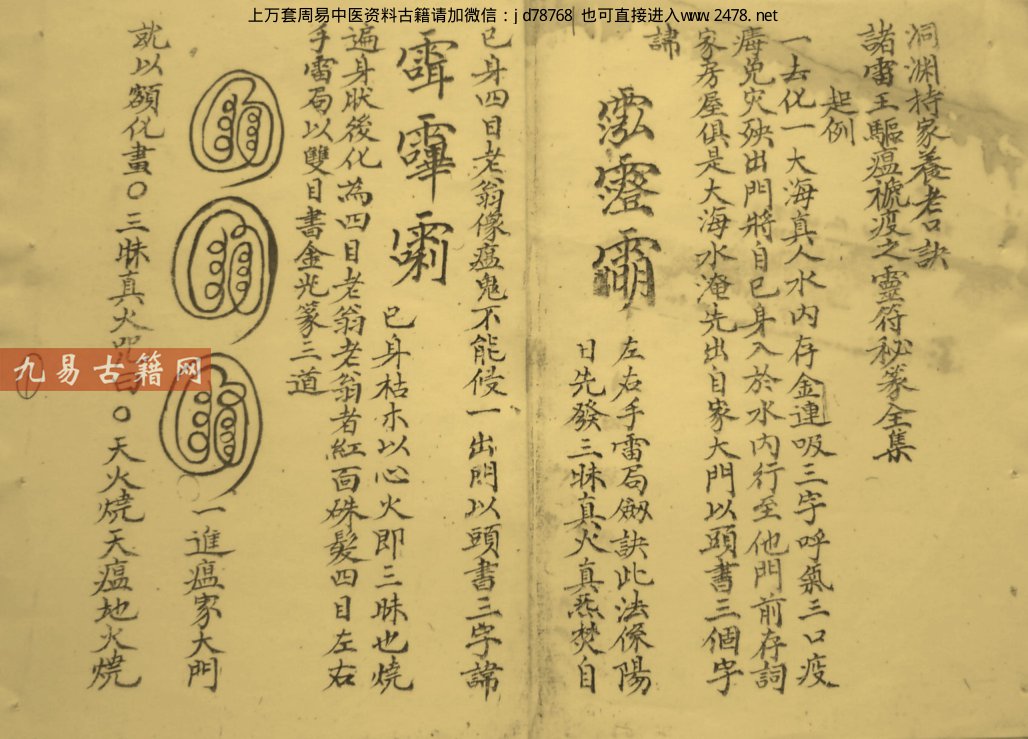 上万套周易中医资料古籍请加微信：jd78768 也可直接进入www.2478.net
洞渊持家養老口訣
諸雷王驅瘟䘠疫之靈符秘篆全集
起例
一去化一大海真人水内存金連吸三字呼氣三口疫
毒免灾殃出門將自已身入於水内行至他門前存詞
家房屋俱是大海水淹先出自家大門以頭書三個字
諱
左右手雷局劔訣此法係陽
日先發三昧真火真炁焚自
已身四目老翁像瘟鬼不能侵一出門以頭書三字諱
已身枯木以心火即三昧也燒
遍身狀後化為四目老翁老翁者紅面硃髮四目左右
手雷局以雙目書金光篆三道
一進瘟家大門
就以額化畫〇三昧真火咒曰〇天火燒天瘟地火燒
九易古籍网